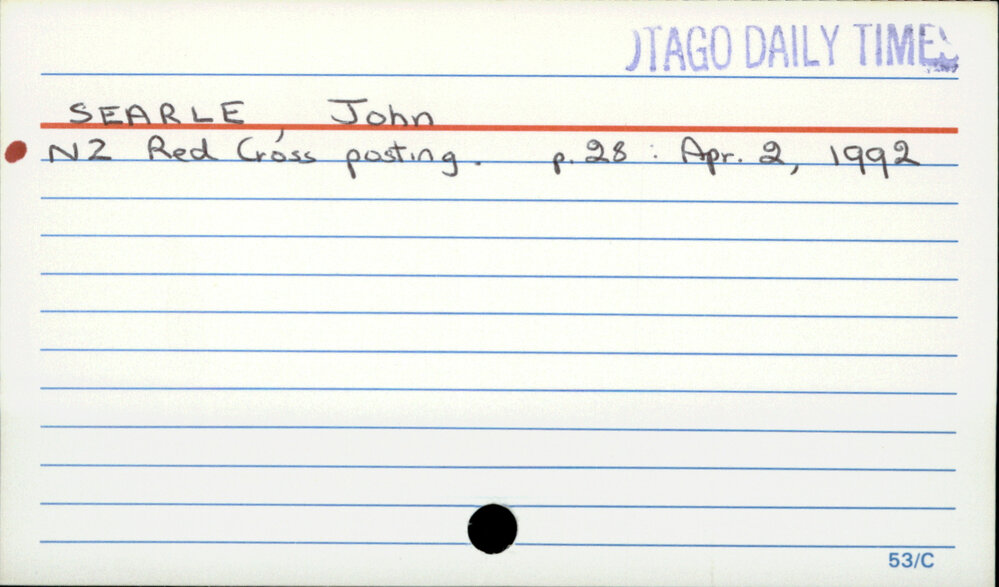 OTAGO DAILY TIMES
SEARLE, John
NZ Red Cross posting. p.28 : Apr. 2, 1992
53/C